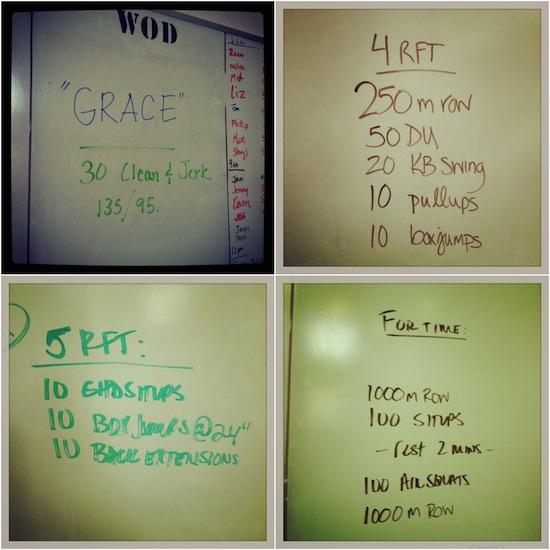 WOD
"GRACE"
30 Clean & Jerk
135/95.
Liz
Tom
Phillip
9am
Jen
Jenny
Kevin
Jeff
4 RFT
250m row
50 DU
20 KB Swing
10 pullups
10 boxjumps
5 RFT:
10 GHD SITUPS
10 BOX JUMPS @ 24"
10 BACK EXTENSIONS
FOR TIME:
1000m ROW
100 SITUPS
- rest 2 mins -
100 AIR SQUATS
1000m ROW